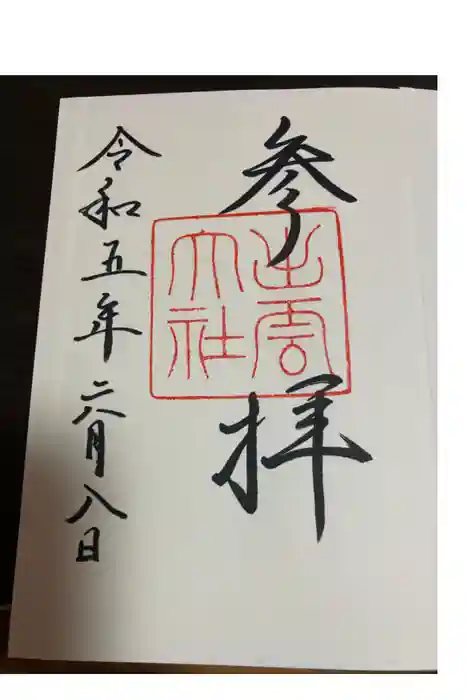 参拝
出雲
大社
令和五年六月八日